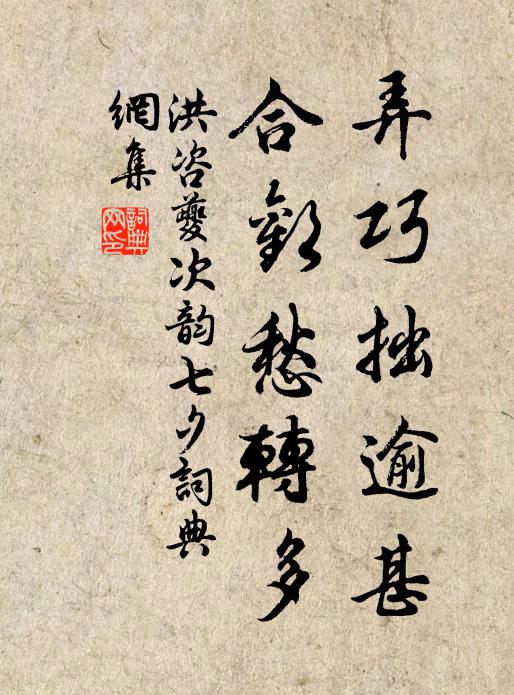 弄巧拙逾甚
合歡愁轉多
洪咨夔次韵七夕詞典
網集
詞典
网印